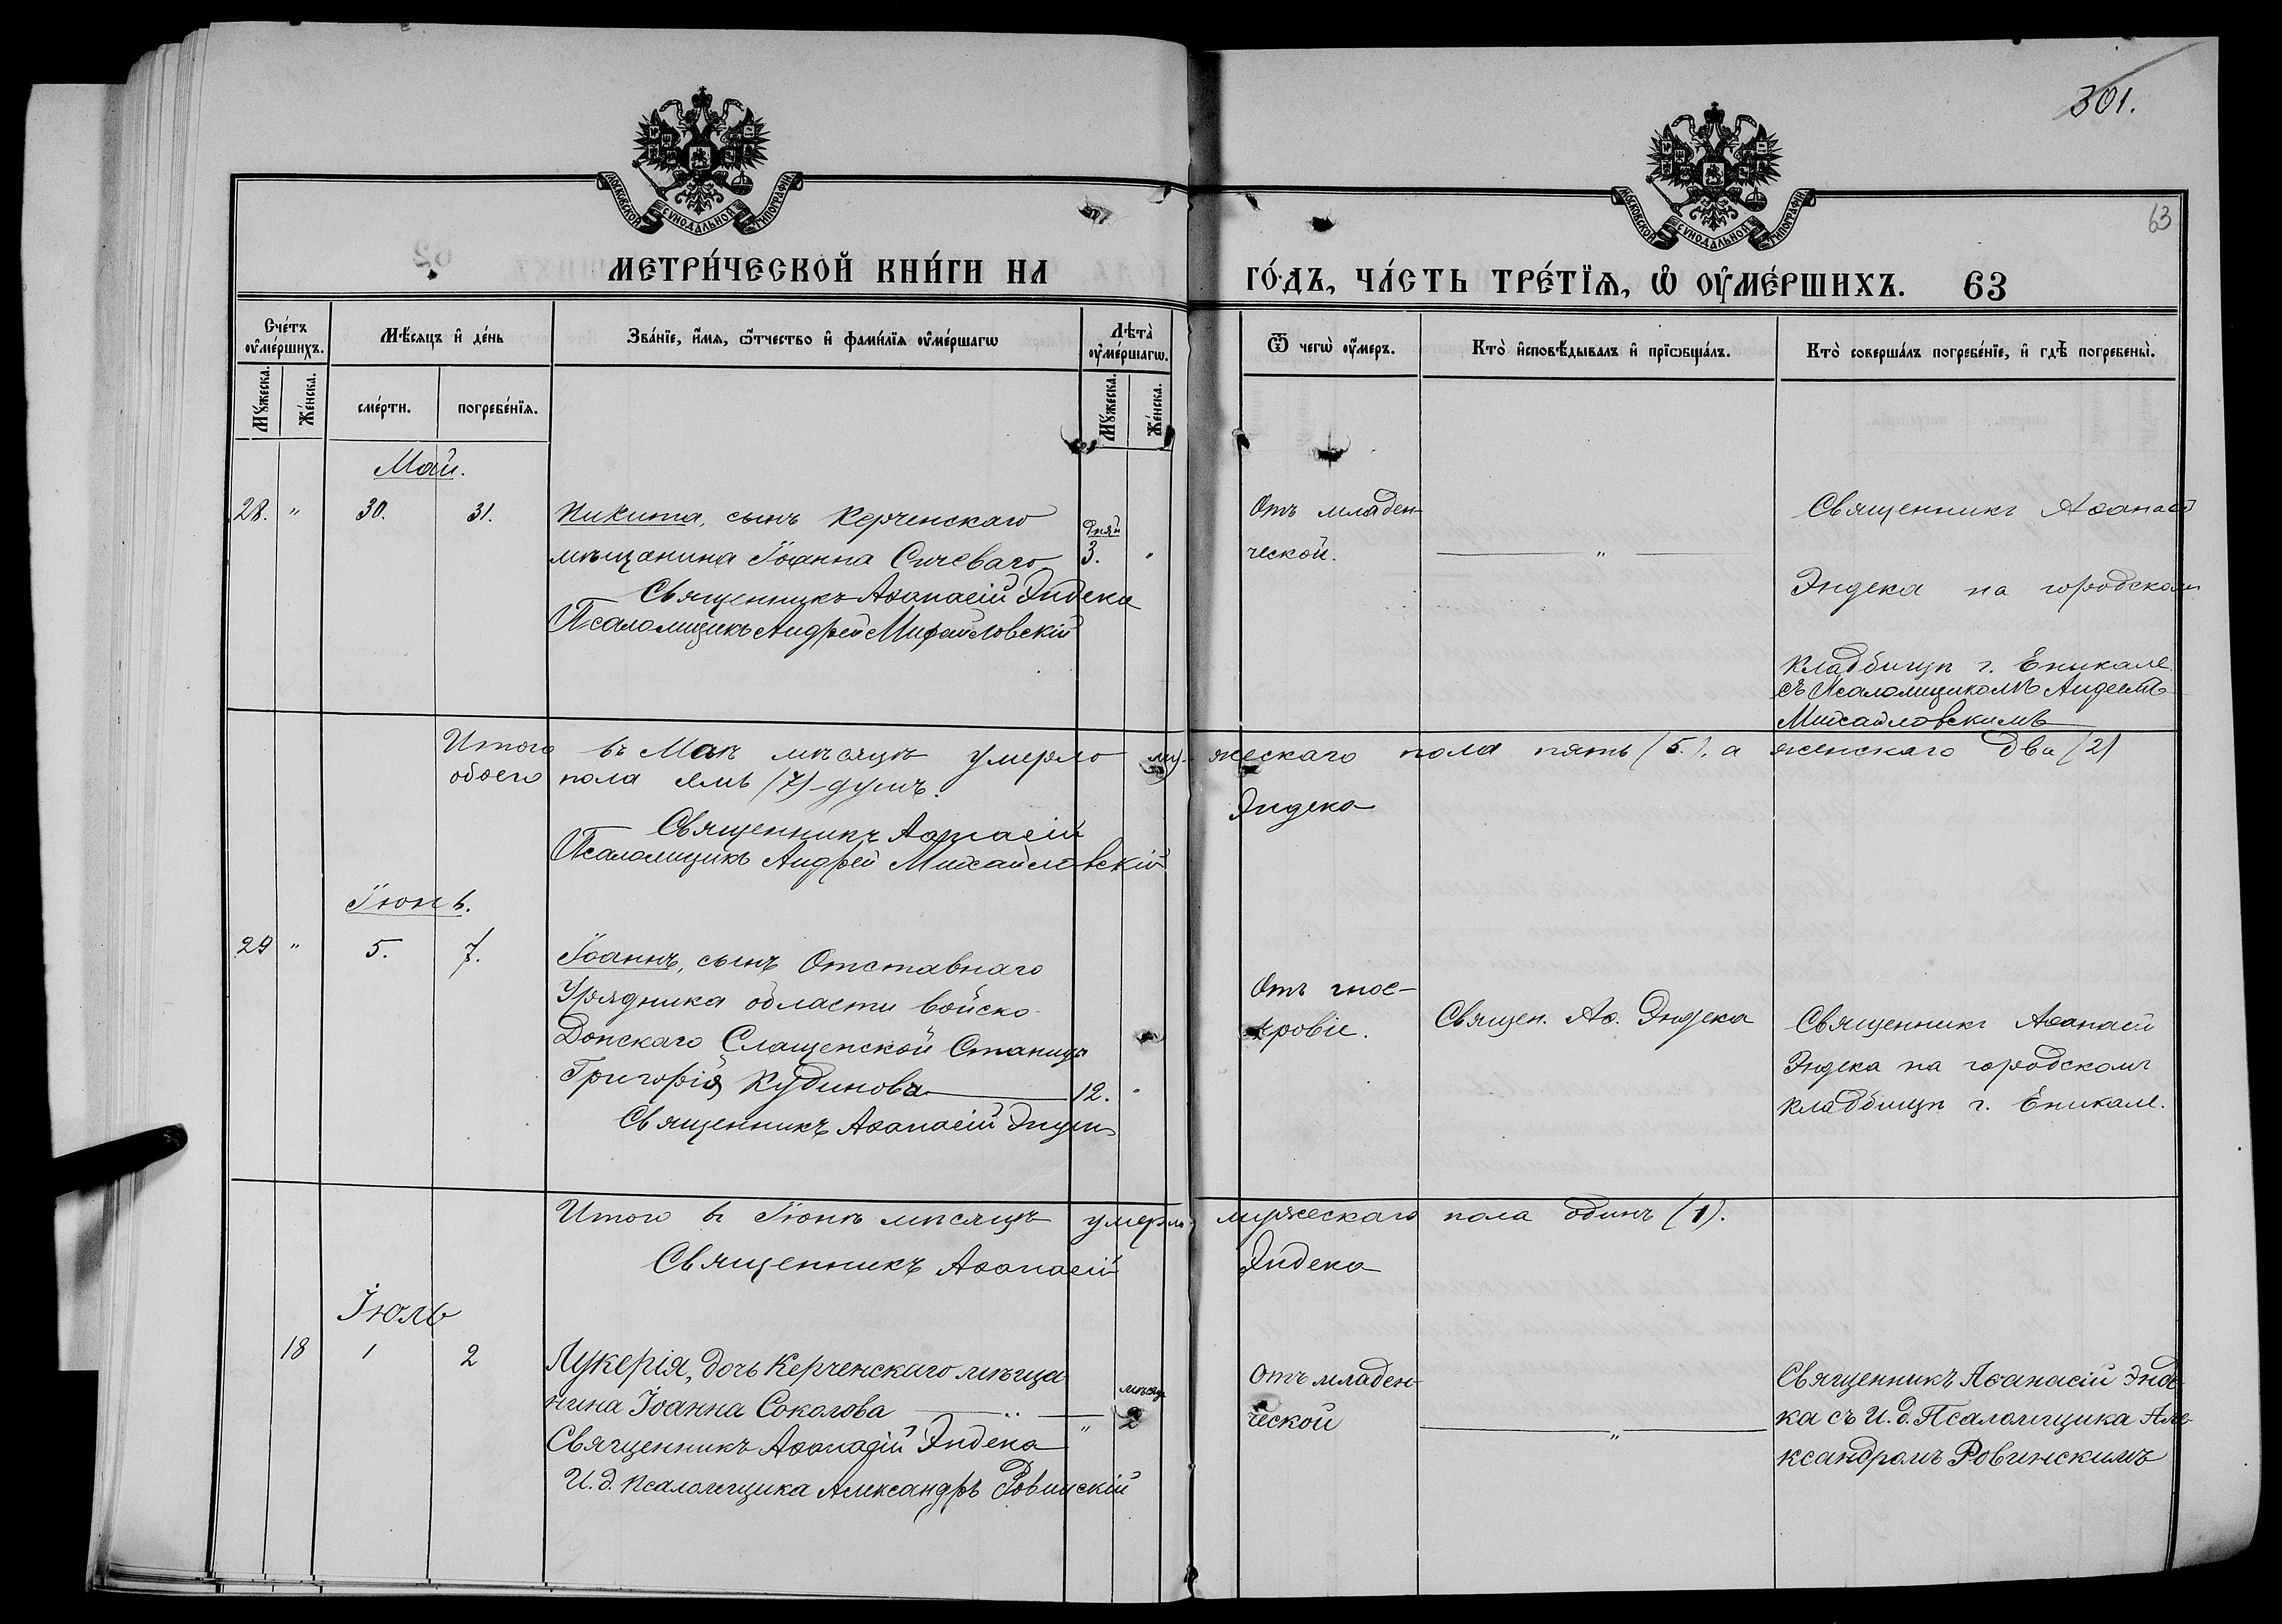 301.
63
МОСКОВСКОЙ СѴНОДАЛЬНОЙ ТИПОГРАФІИ
МОСКОВСКОЙ СѴНОДАЛЬНОЙ ТИПОГРАФІИ
МЕТРИ́ЧЕСКОЙ КНИ́ГИ НА
ГО́ДЪ, ЧА́СТЬ ТРЕ́ТЇѦ, Ѡ҆ ОУ҆МЕ́РШИХЪ. 63
Сче́тъ оу҆ме́ршихъ.
Мѣ́сяцъ и҆ де́нь
Зва́нїе, и҆́мя, ѻ҆́тчество и҆ фами́лїя оу҆ме́ршагѡ
Лѣта̀ оу҆ме́ршагѡ.
Ѿ чегѡ̀ оу҆́меръ.
Кто̀ и҆сповѣ́дывалъ и҆ прїѡбща́лъ.
Кто̀ соверша́лъ погребе́нїе, и҆ гдѣ̀ погребены̀.
Мꙋ́жеска.
Же́нска.
сме́рти.
погребе́нїя.
Мꙋ́жеска.
Же́нска.
Май.
28. " 30. 31. Никита, сынъ Керченскаго
мѣщанина Іоанна Сичеваго
дней
3. "
Священникъ Аѳанасій Эндека
Псаломщикъ Андрей Михайловскій
Отъ младен-
ческой.
"
Священникъ Аѳанасій
Эндека на городском
кладбищѣ г. Еникале
съ Псаломщикомъ Андреемъ
Михайловскимъ
Итого въ Маѣ мѣсяцѣ умерло мужескаго пола пять (5.), а женскаго два (2)
обоего пола семь (7) душъ.
Священникъ Аѳанасій Эндека
Псаломщикъ Андрей Михайловскій
Іюнь.
29 " 5. 7. Іоаннъ, сынъ Отставнаго
Урядника области войско
Донскаго Слащенской Станицы
Григорія Кудинова 12. "
Священникъ Аѳанасій Эндека
Отъ гное-
кровіе.
Священ. Аѳ. Эндека
Священникъ Аѳанасій
Эндека на городскомъ
кладбищѣ г. Еникале.
Итого въ Іюнѣ мѣсяцѣ умерло мужескаго пола одинъ (1).
Священникъ Аѳанасій Эндека
Іюль
18 1 2 Лукерія, дочь Керченскаго мѣща
нина Іоанна Соколова
мѣсяц.
" 2
Священникъ Аѳанасій Эндека
И. д. псаломщика Александръ Ровинскій
Отъ младен-
ческой
"
Священникъ Аѳанасій Энде-
ка съ И. д. Псаломщика Але-
ксандромъ Ровинскимъ